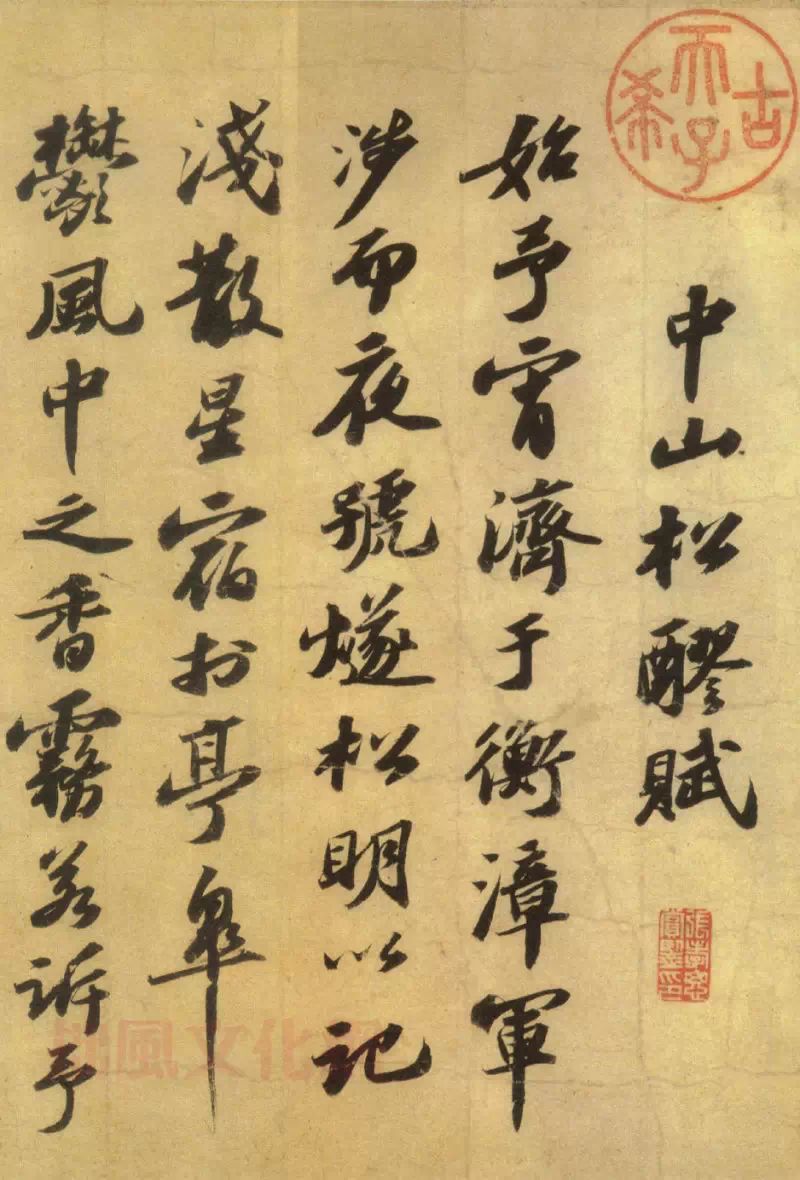 古希天子
中山松醪賦
張孝思賞鑒印
始予宵濟于衡漳軍
涉而夜號燧松明以記
淺散星宿於亭皐
鬱風中之香霧若訴予
風文化